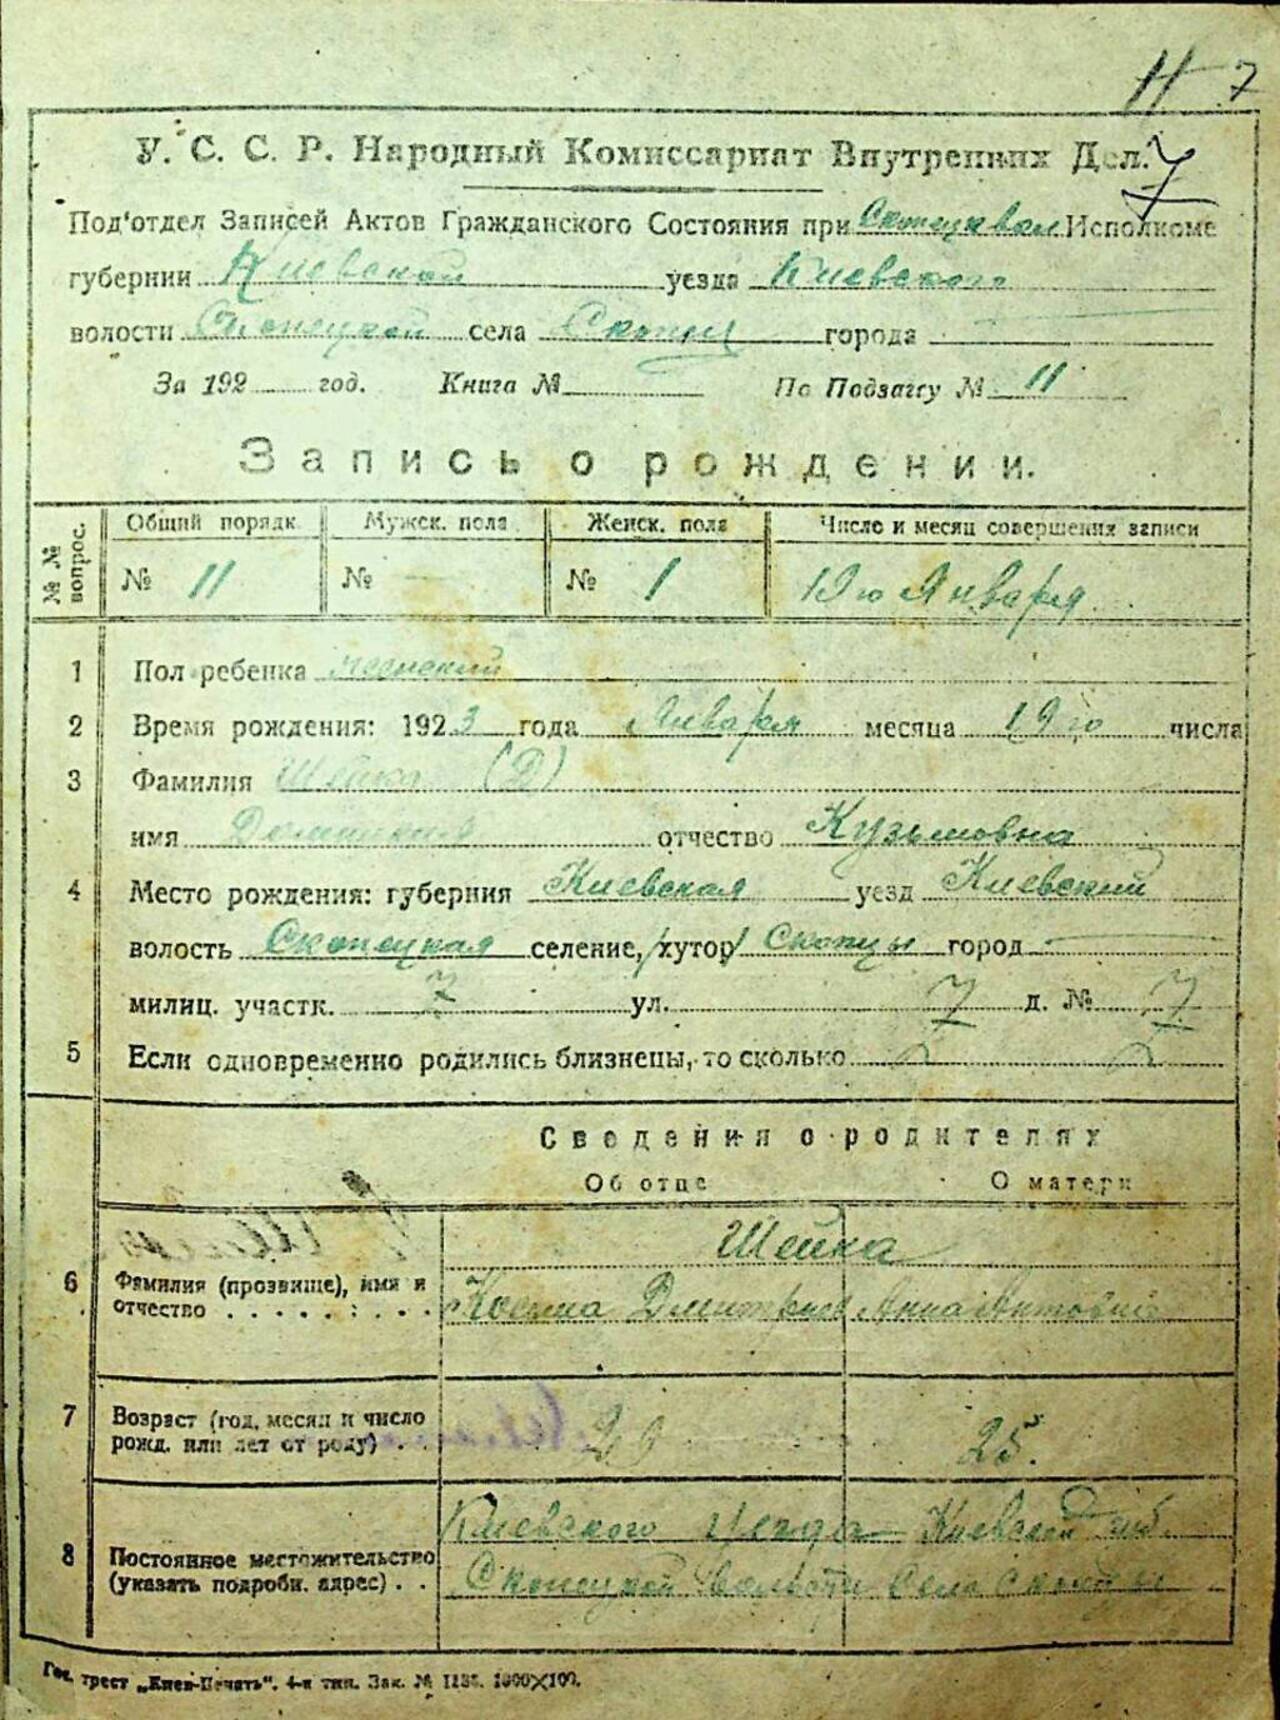 11 7
У. С. С. Р. Народный Комиссариат Внутренних Дел. 7
Под'отдел Записей Актов Гражданского Состояния при Исполкоме
губернии Киевской уезда Киевского
волости Скопецкой села Скопцы города
За 192 год. Книга № По Подзагсу № 11
Запись о рождении.
№ № вопрос. Общий порядк Мужск. пола Женск. пола Число и месяц совершения записи
№ 11 № № 1 19го Января
1 Пол ребенка женский
2 Время рождения: 1923 года Января месяца 19го числа
3 Фамилия Шейка (Д)
имя отчество Кузьмовна
4 Место рождения: губерния Киевская уезд Киевский
волость Скопецкая селение, /хутор/ Скопцы город
милиц. участк. 7 ул. 7 д. № 7
5 Если одновременно родились близнецы, то сколько
Сведения о родителях
Об отце О матери
Шейка
6 Фамилия (прозвище), имя и
отчество . . . . . : . . . Косьма Дмитриев Анна Антовна
7 Возраст (год, месяц и число
рожд. или лет от роду) . . 29 25.
Киевского Уезда Киевской губ.
8 Постоянное местожительство
(указать подробн. адрес) . . Скопецкой волости Село Скопцы
Гос. трест „Киев-Печать“. 4-я тип. Зак. № 1000×100.